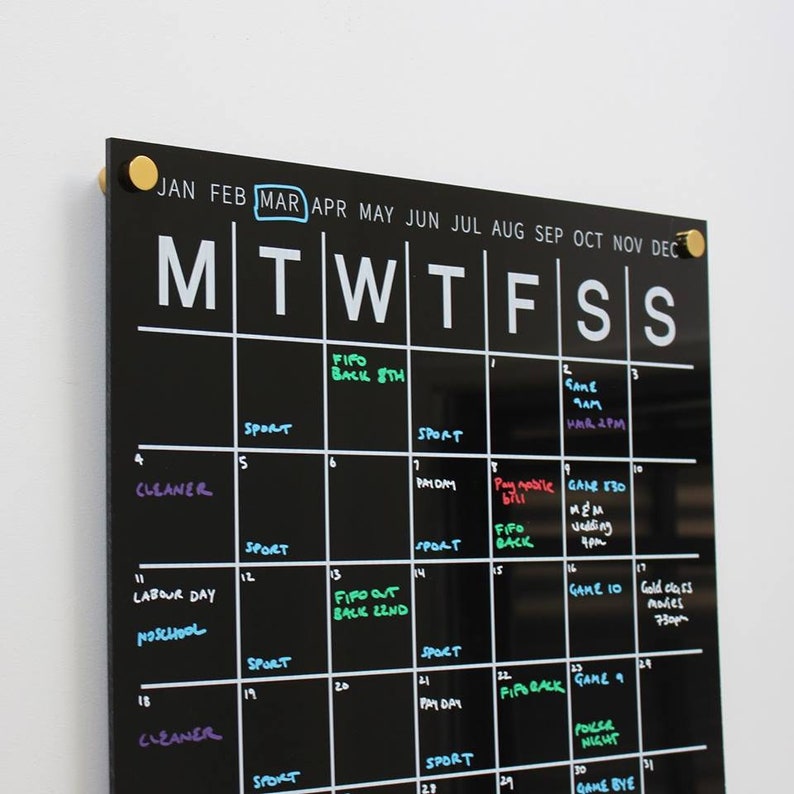 JAN FEB MAR APR MAY JUN JUL AUG SEP OCT NOV DEC
M T W T F S S
FIFO
BACK 8TH
SPORT
SPORT
1
2
GAME
9AM
HAIR 2PM
3
4
CLEANER
5
SPORT
6
7
PAYDAY
SPORT
8
Pay mobile
bill
FIFO
BACK
9
GAME 830
M & M
wedding
4pm
10
11
LABOUR DAY
NO SCHOOL
12
SPORT
13
FIFO OUT
BACK 22ND
14
SPORT
15
16
GAME 10
17
Gold class
movies
730pm
18
CLEANER
19
SPORT
20
21
PAYDAY
SPORT
22
FIFO BACK
23
GAME 9
POKER
NIGHT
29
28
29
30
GAME BYE
31